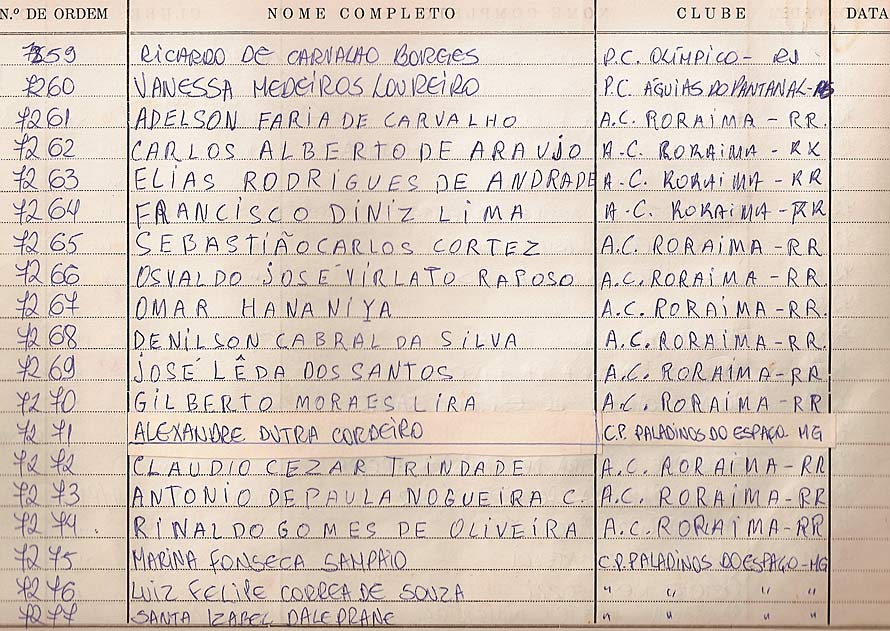 N.º DE ORDEM NOME COMPLETO CLUBE DATA
7259 RICARDO DE CARVALHO BORGES P.C. OLÍMPICO - RJ
7260 VANESSA MEDEIROS LOUREIRO P.C. ÁGUIAS DO PANTANAL -
7261 ADELSON FARIA DE CARVALHO A.C. RORAIMA - RR.
7262 CARLOS ALBERTO DE ARAUJO A.C. RORAIMA - RR
7263 ELIAS RODRIGUES DE ANDRADE A.C. RORAIMA - RR
7264 FRANCISCO DINIZ LIMA A.C. RORAIMA - RR
7265 SEBASTIÃO CARLOS CORTEZ A.C. RORAIMA - RR.
7266 OSVALDO JOSÉ VIRLATO RAPOSO A.C. RORAIMA - RR.
7267 OMAR HANANIYA A.C. RORAIMA - RR.
7268 DENILSON CABRAL DA SILVA A.C. RORAIMA - RR.
7269 JOSÉ LÊDA DOS SANTOS A.C. RORAIMA - RR
7270 GILBERTO MORAES LIRA A.C. RORAIMA - RR
7271 ALEXANDRE DUTRA CORDEIRO C.P. PALADINOS DO ESPAÇO - MG
7272 CLAUDIO CEZAR TRINDADE A.C. RORAIMA - RR
7273 ANTONIO DE PAULA NOGUEIRA C. A.C. RORAIMA - RR
7274 RINALDO GOMES DE OLIVEIRA A.C. RORAIMA - RR
7275 MARINA FONSECA SAMPAIO C.P. PALADINOS DO ESPAÇO - MG
7276 LUIZ FELIPE CORREA DE SOUZA " " " "
7277 SANTA IZABEL DALEPRANE " " " "